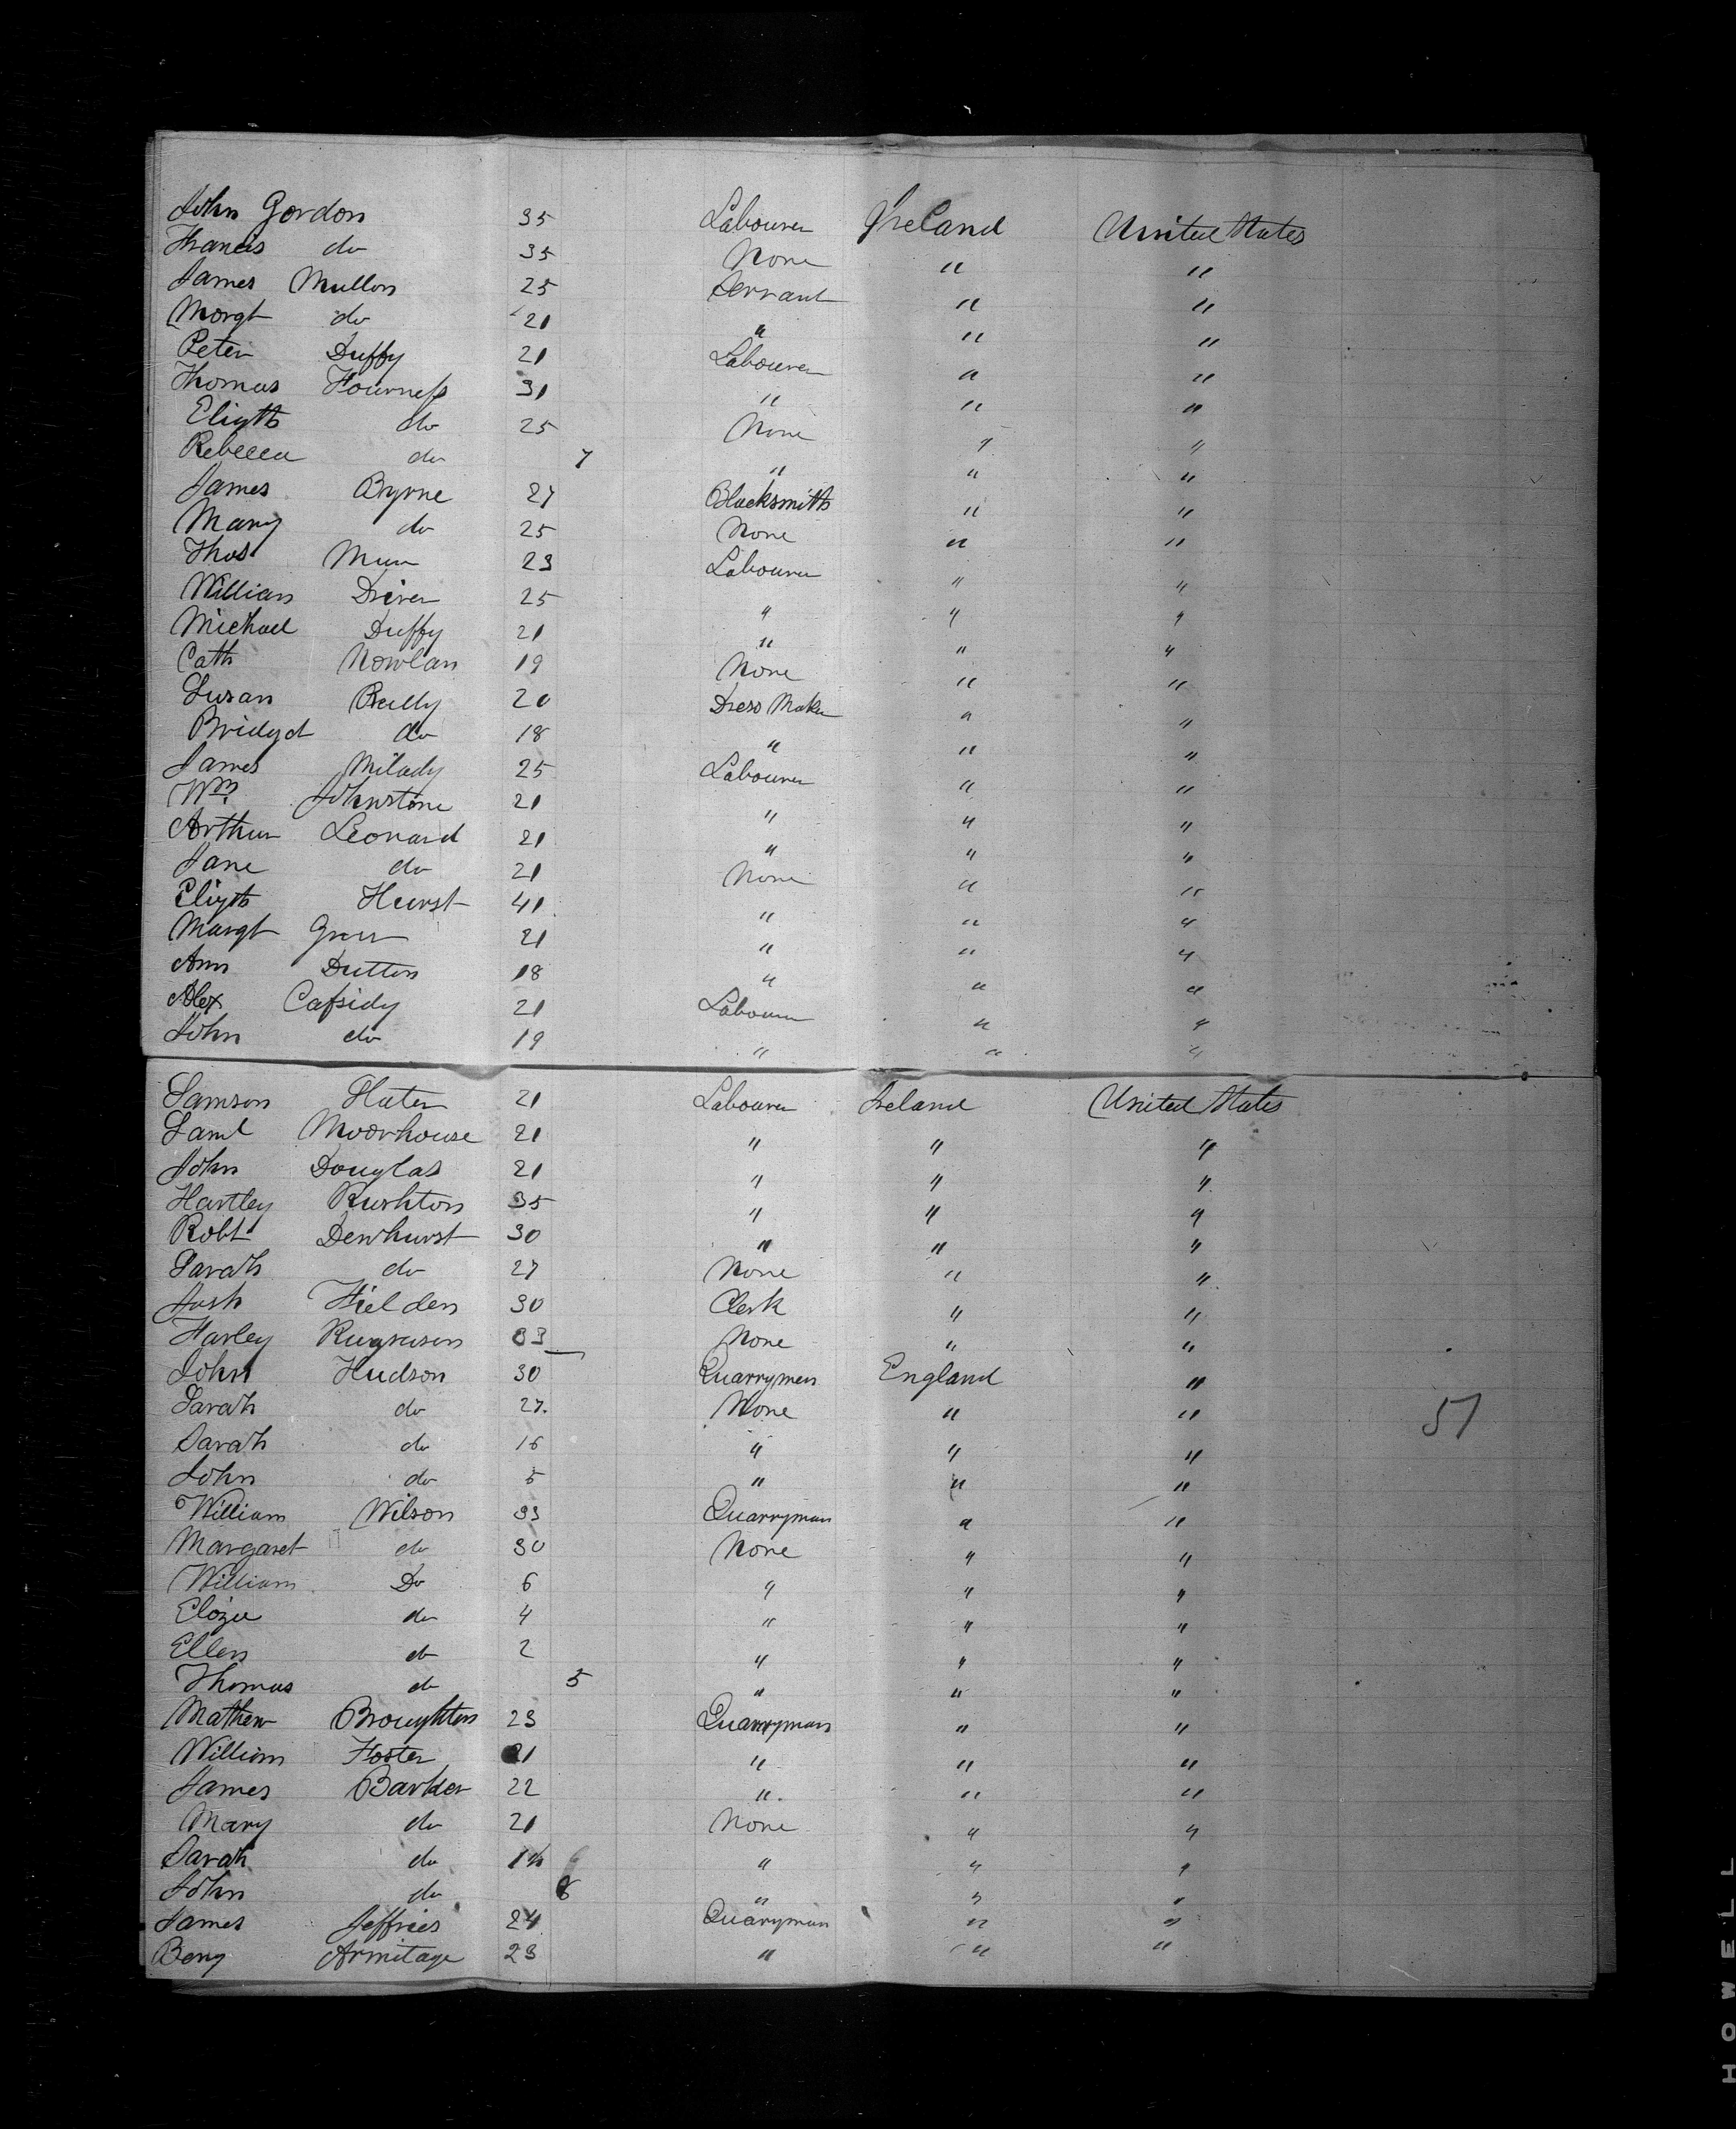 John Gordon 35 Labourer Ireland United States
Francis do 35 None " "
James Mullon 25 Servant " "
Margt do 21 " " "
Peter Duffy 21 Labourer " "
Thomas Fourness 31 " " "
Elizth do 25 None " "
Rebecca do 7 " " "
James Byrne 27 Blacksmith " "
Mary do 25 None " "
Thos 23 Labourer " "
William Driver 25 " " "
Michael Duffy 21 " " "
Cath Nowlan 19 None " "
Susan Reilly 20 Dress Maker " "
Bridgd do 18 " " "
James Milady 25 Labourer " "
Wm Johnstone 21 " " "
Arthur Leonard 21 " " "
Jane do 21 None " "
Elizth Hurst 41 " " "
Margt 21 " " "
Ann Dutton 18 " " "
Alex Cassidy 21 Labourer " "
John do 19 " " "
Samson Slater 21 Labourer Ireland United States
Saml Moorhouse 21 " " "
John Douglas 21 " " "
Hartley Rushton 35 " " "
Robt Dewhurst 30 " " "
Sarah do 27 None " "
Josh Fielden 30 Clerk " "
Harley 33 None " "
John Hudson 30 Quarryman England "
Sarah do 27. None " "
Sarah do 16 " " "
John do 5 " " "
William Wilson 33 Quarryman " "
Margaret do 30 None " "
William Do 6 " " "
do 4 " " "
Ellen do 2 " " "
Thomas do 5 " " "
Mathew Broughton 23 Quarryman " "
William Foster 21 " " "
James Barker 22 " " "
Mary do 21 None " "
Sarah do " " "
John do 6 " " "
James Jeffries 24 Quaryman " "
Benj Armitage 23 " " "
51
HOWELL